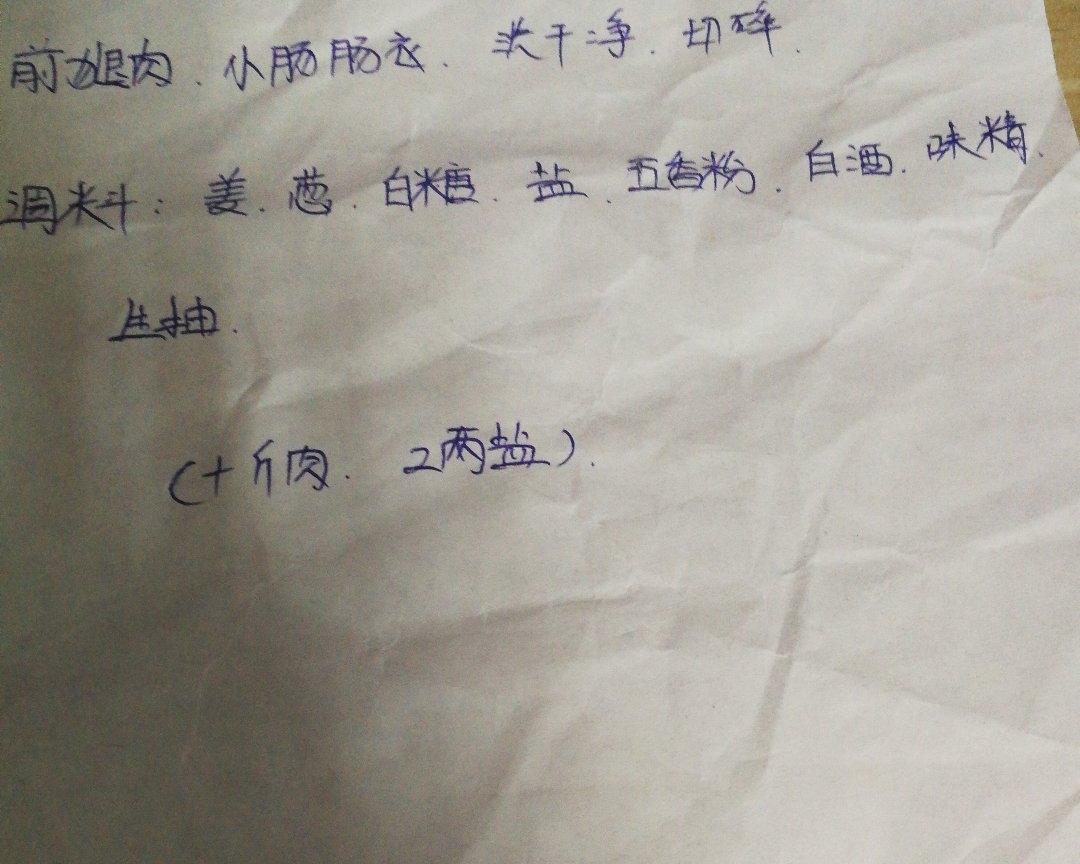 前腿肉.小肠肠衣.洗干净.切碎.
调料:姜.葱.白糖.盐.五香粉.白酒.味精.
生抽.
(十斤肉.2两盐).